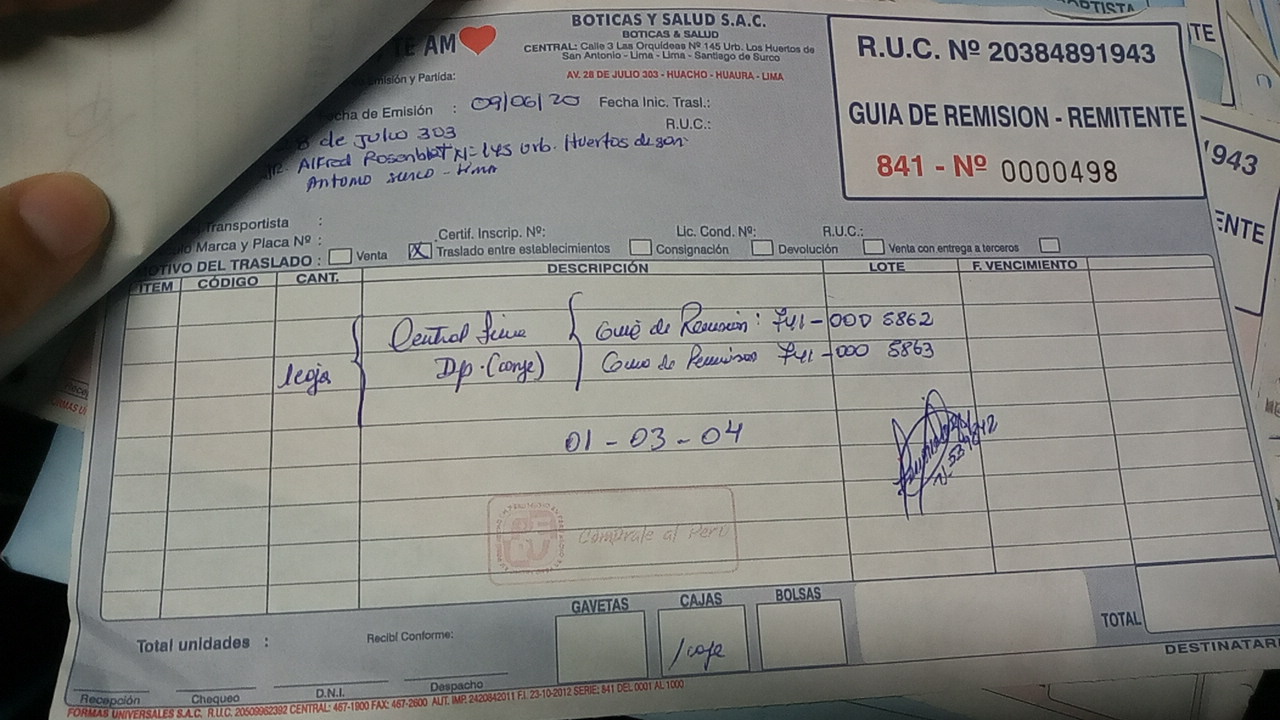 TE AM
BOTICAS Y SALUD S.A.C.
BOTICAS & SALUD
CENTRAL: Calle 3 Las Orquídeas Nº 145 Urb. Los Huertos de
San Antonio - Lima - Lima - Santiago de Surco
AV. 28 DE JULIO 303 - HUACHO - HUAURA - LIMA
R.U.C. Nº 20384891943
GUIA DE REMISION - REMITENTE
841 - Nº 0000498
misión y Partida:
cha de Emisión : 09/06/20 Fecha Inic. Trasl.:
R.U.C.:
8 de Julio 303
Alfred Rosenblat Nº 145 Urb. Huertos de San
Antonio Surco - Lima
Transportista :
Marca y Placa Nº :
Certif. Inscrip. Nº:
Lic. Cond. Nº:
R.U.C.:
OTIVO DEL TRASLADO : Venta X Traslado entre establecimientos Consignación Devolución Venta con entrega a terceros
ITEM CÓDIGO CANT. DESCRIPCIÓN LOTE F. VENCIMIENTO
Central Lima
Dp. (canje)
Guia de Remision: 741-000 5862
Guia de Remision 741-000 5863
1caja
01 - 03 - 04
Cómprale al Perú
GAVETAS CAJAS BOLSAS
1 caja
TOTAL
Total unidades :
Recibí Conforme:
DESTINATAR
Recepción Chequeo D.N.I. Despacho
FORMAS UNIVERSALES S.A.C. R.U.C. 20509962392 CENTRAL: 467-1900 FAX: 467-2600 AUT. IMP. 2420842011 F.I. 23-10-2012 SERIE: 841 DEL 0001 AL 1000
ARTISTA
TE
943
ENTE